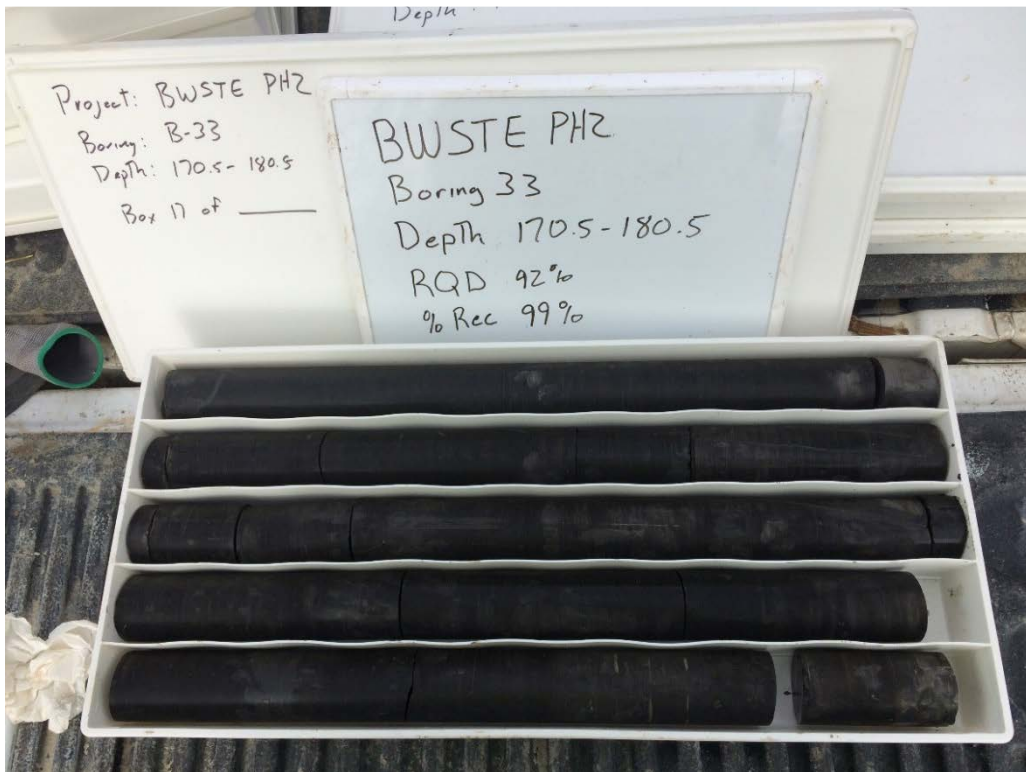 Depth
Project: BWSTE PH2
Boring: B-33
Depth: 170.5 - 180.5
Box 17 of
BWSTE PH2
Boring 33
Depth 170.5 - 180.5
RQD 92%
% Rec 99%